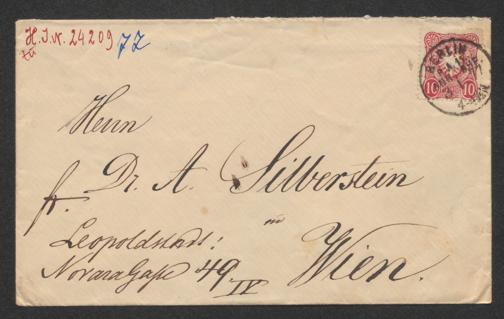 H. I. N. 24209
zu
77
BERLIN
10 10
Herrn
fr. Dr. A. Silberstein
in
Wien.
Leopoldstadt:
Novaragaße 49
IV